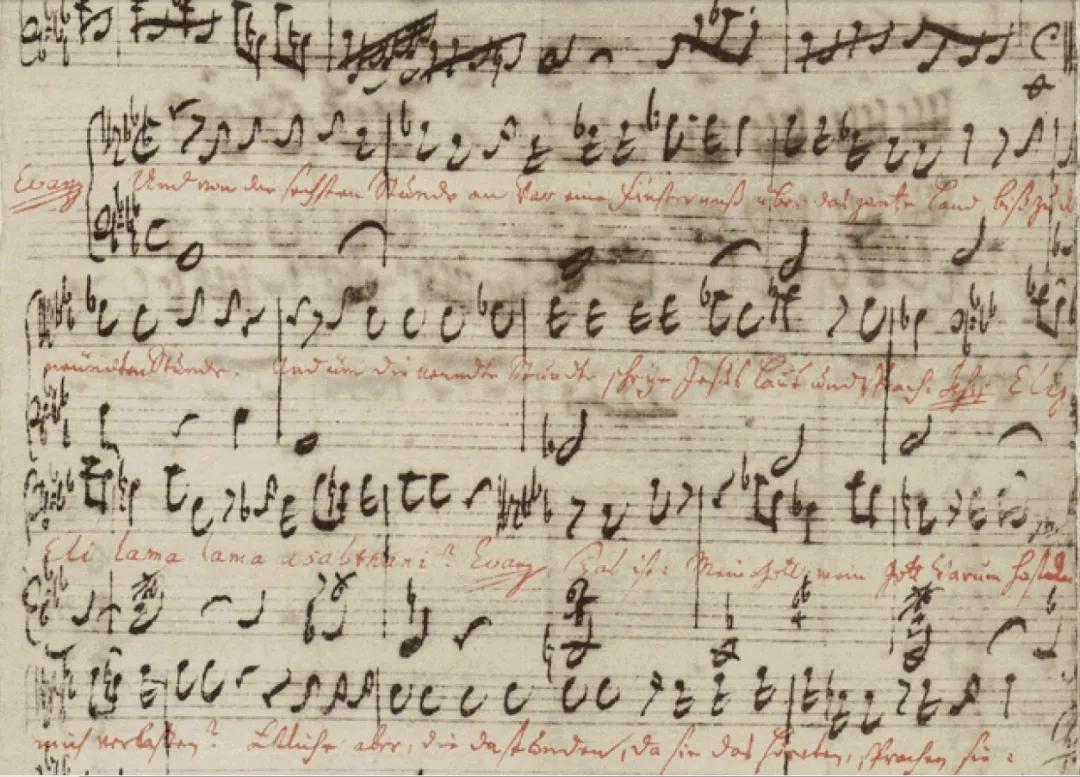 Evang Und von der sechsten Stunde an war eine Finsterniß über das gantze Land biß zu
neundten Stunde. Und um die neundte Stunde schrye Jesus laut und sprach. Eli,
Eli lama lama asabthani? Evang Das ist: Mein Gott, mein Gott warum hastu
mich verlaßen? Etliche aber, die da stunden, da sie das höreten, sprachen sie: